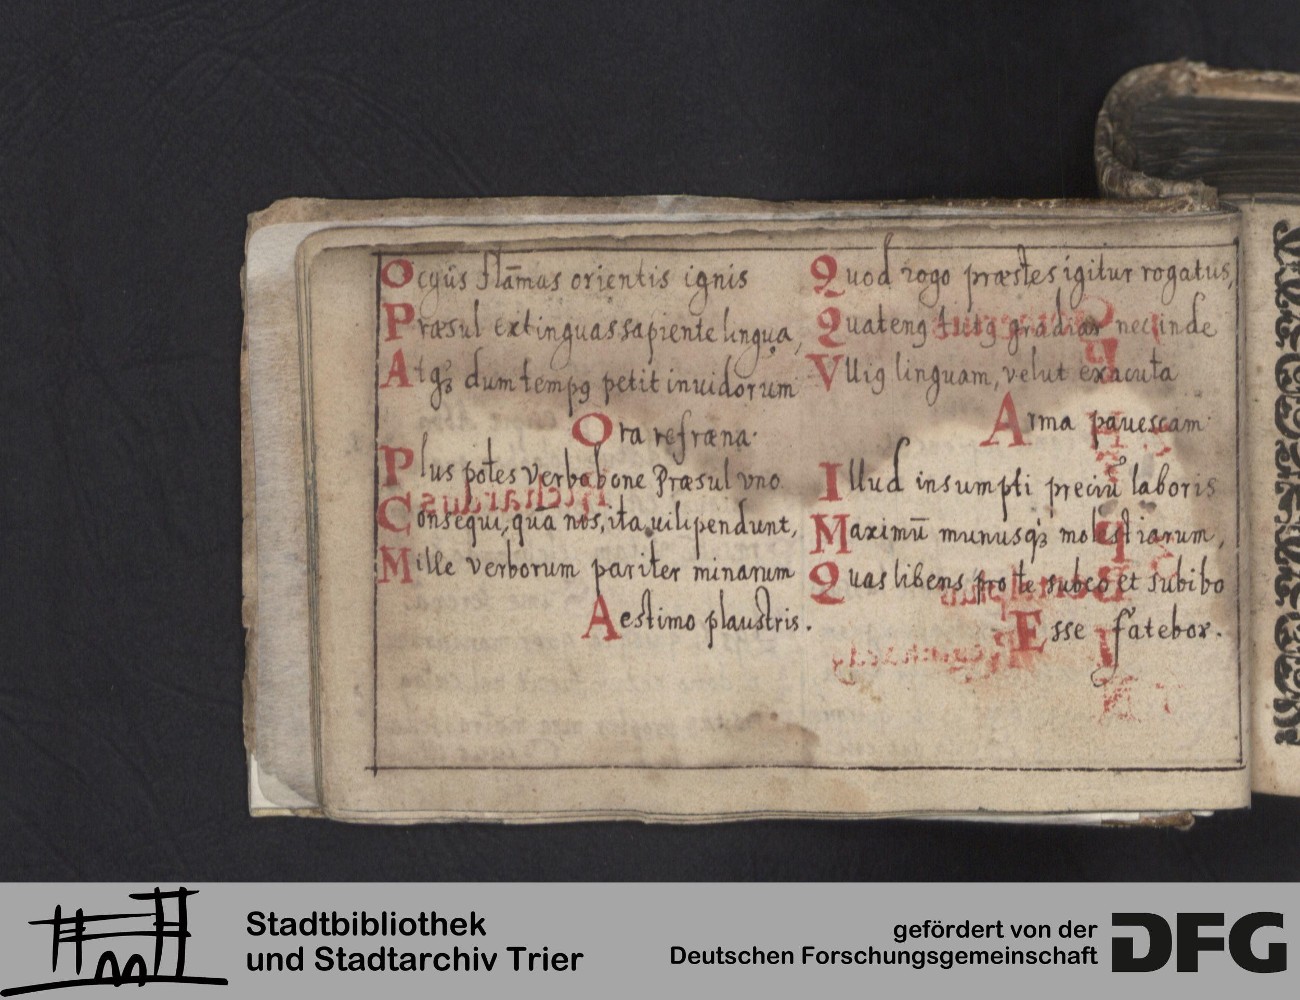 Ocyüs flāmas orientis ignis
Præsul extinguas sapiente lingua,
Atqꝫ dum tempꝯ petit inuidorum
Ora refræna·
Plus potes verbo bone Præsul vno
Consequi, quā nos, ita uilipendunt,
Mille verborum pariter minarum
Aestimo plaustris.
Quod rogo præstes igitur rogatus,
Quatenꝯ tutꝯ gradiar nec inde
Vlliꝯ linguam, velut exacuta
Arma pauescam·
Illud insumpti preciū laboris
Maximū munusqꝫ molestiarum,
Quas libens pro te subeo et subibo
Esse fatebor.
Stadtbibliothek
und Stadtarchiv Trier
gefördert von der
Deutschen Forschungsgemeinschaft
DFG